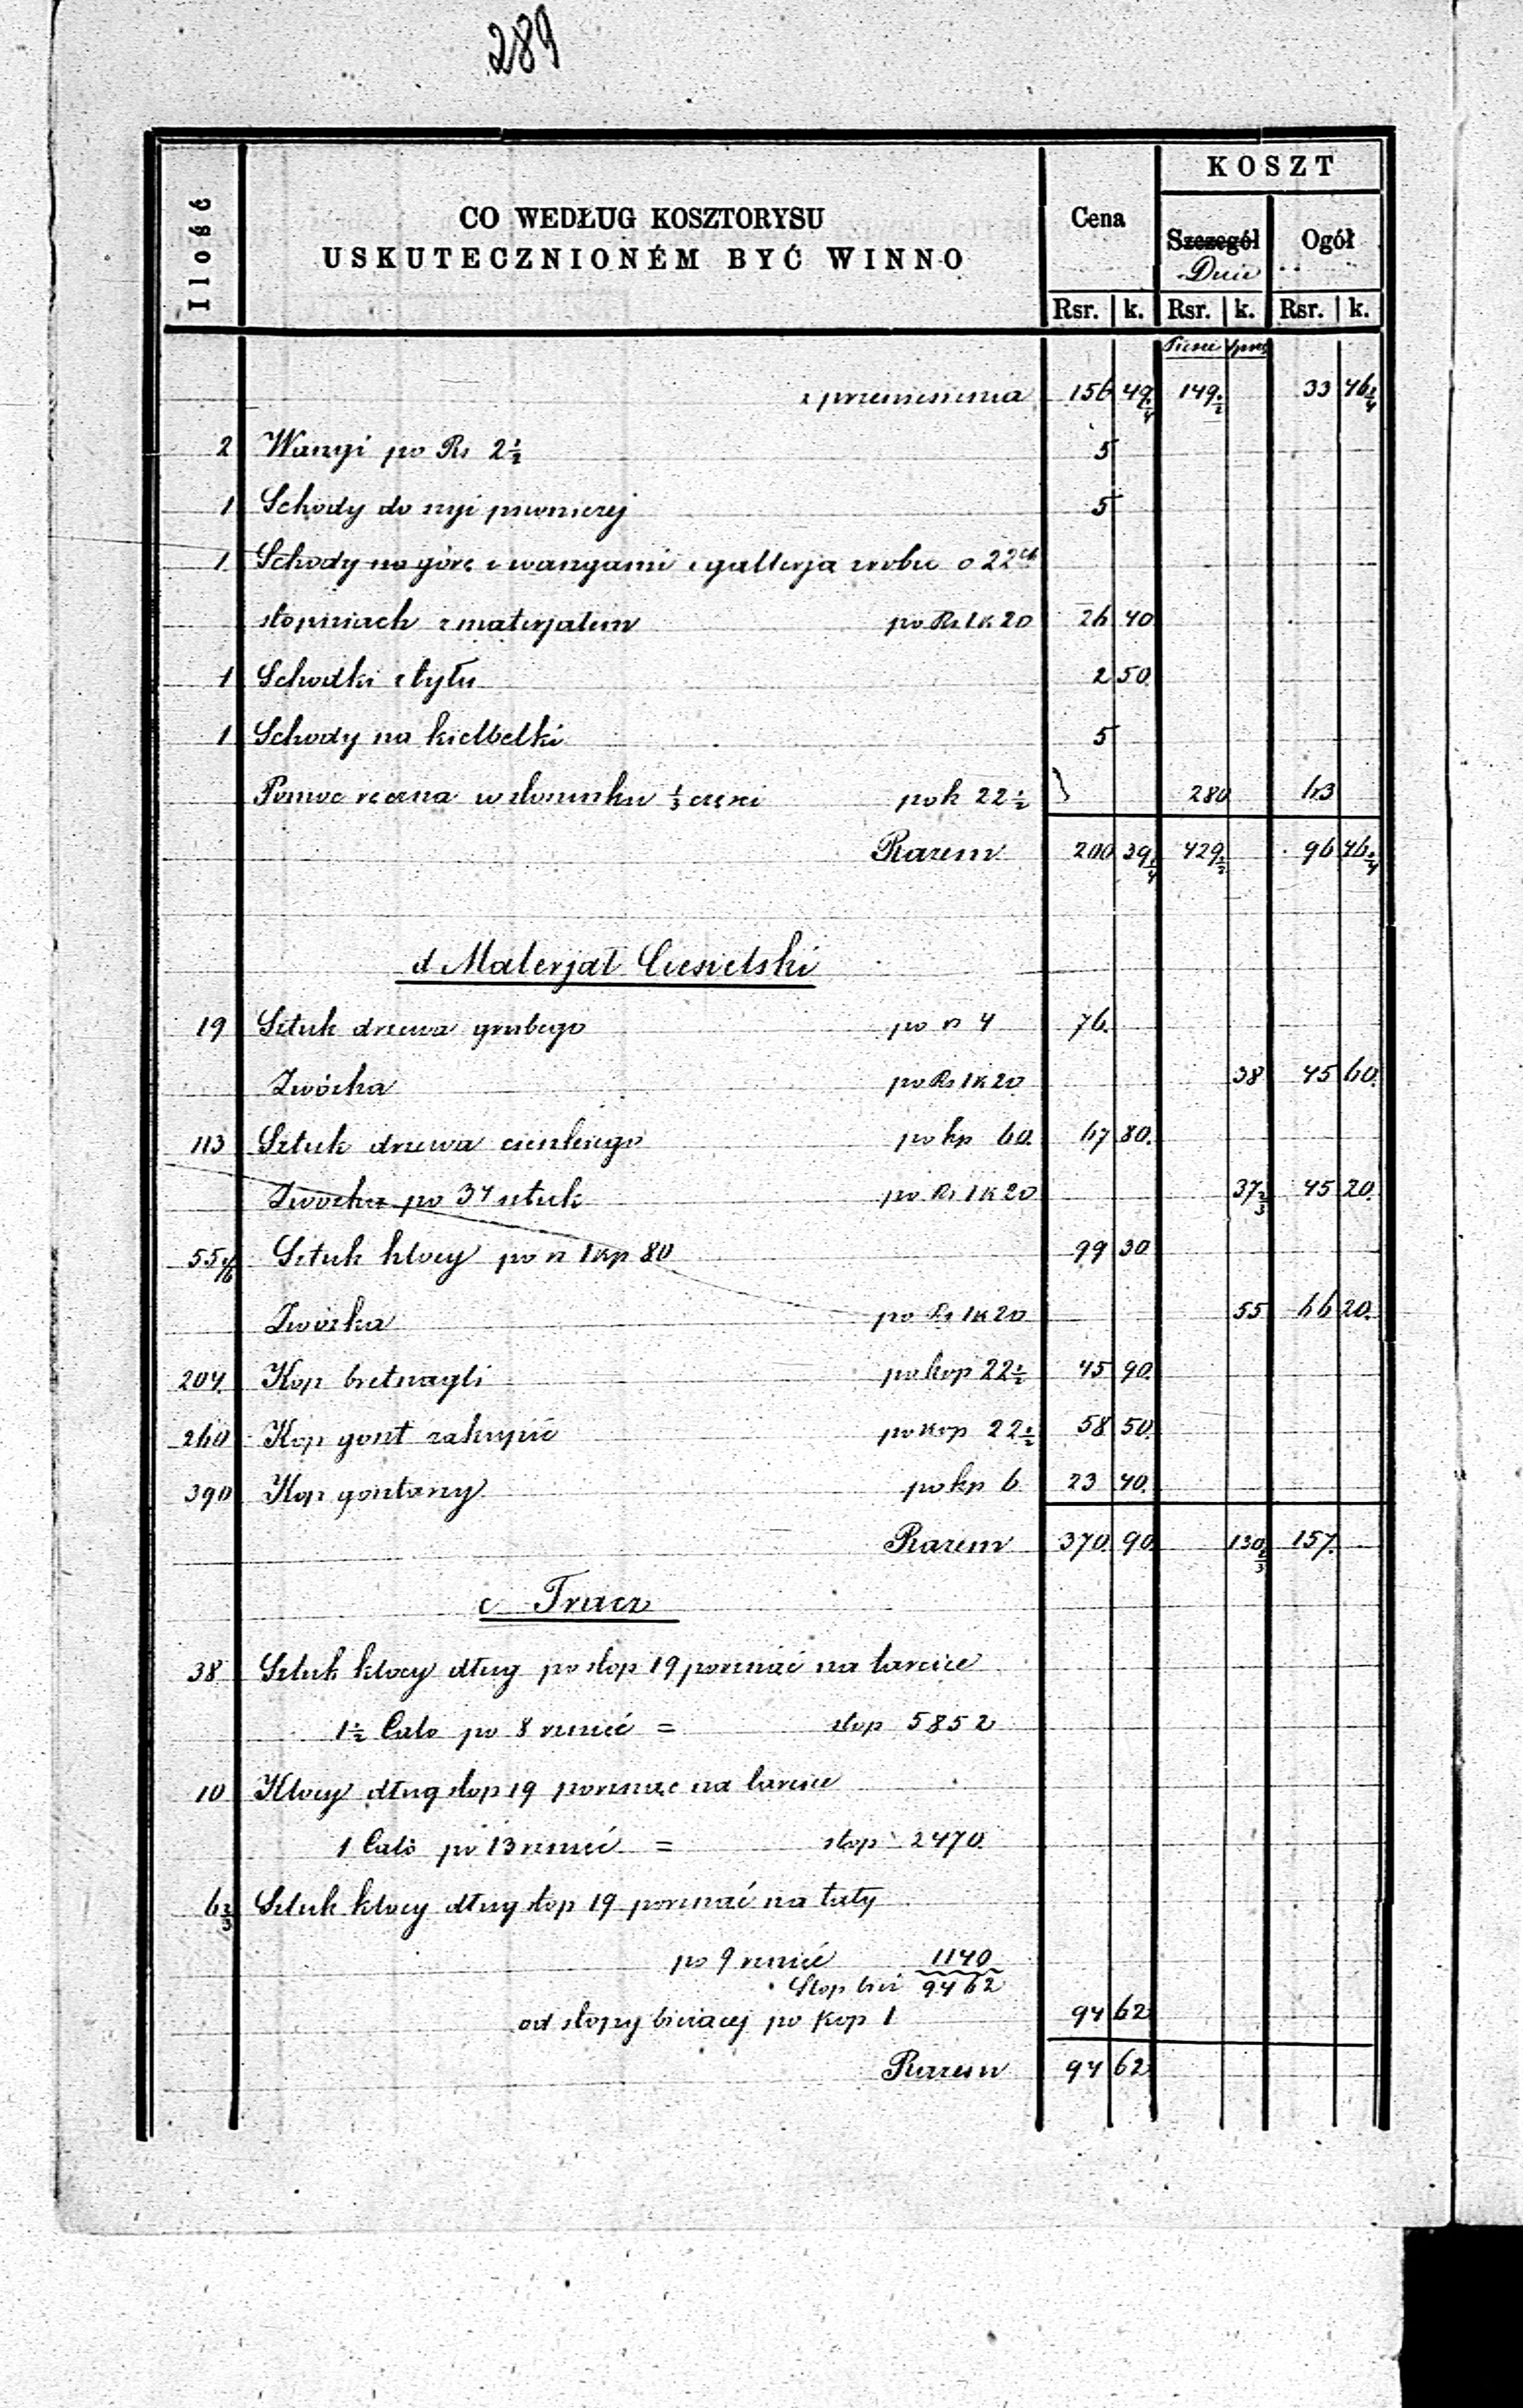 289
Ilość
CO WEDŁUG KOSZTORYSU
USKUTECZNIONÉM BYĆ WINNO
Cena
KOSZT
Szczegół
Dnie
Ogół
Rsr. k. Rsr. k. Rsr. k.
Piesze sprz
z przeniesienia 156 49 1/4 149 1/2 33 46 1/4
2 Wangi po Rs 2 1/2 5
1 Schody do szyi piwniczej 5
1 Schody na górę z wangami i gallerja zrobić o 22ch
stopniach z materjałem po Rs 1 k 20 26 40
1 Schodki z tyłu 2 50
1 Schody na kielbelki 5
Pomoc ręczna w stosunku 1/3 części po k 22 1/2 280 63
Razem 200 39 1/4 429 1/2 96 46 1/4
d Materjał Ciesielski
19 Sztuk drzewa grubego po rs 4 76.
Zwózka po Rs 1 k 20 38 45 60
113 Sztuk drzewa cienkiego po kp 60 67 80.
Zwózka po 3 sztuk po Rs 1 k 20 37 2/3 45 20.
55 1/6 Sztuk klocy po rs 1 kp 80 99 30
Zwózka po Rs 1 k 20 55 66 20.
204 Kop bretnagli po kop 22 1/2 45 90.
260 Kop gont zakupić po kop 22 1/2 58 50.
390 Kop gontany po kp 6 23 40.
Razem 370 90 130 2/3 157.
e Tracz
38 Sztuk klocy długi po stop 19 porznać na tarcice
1 1/2 Calo po 8 rznięć = stop 5852
10 Klocy dług stop 19 porznąc na tarcice
1 Calo po 13 rznięć = stop 2470
6 2/3 Sztuk klocy dług stop 19 porznać na łaty
po 9 rznięć 1140
Stop bież 9462
od stopy bieżacej po kop 1 94 62
Razem 94 62